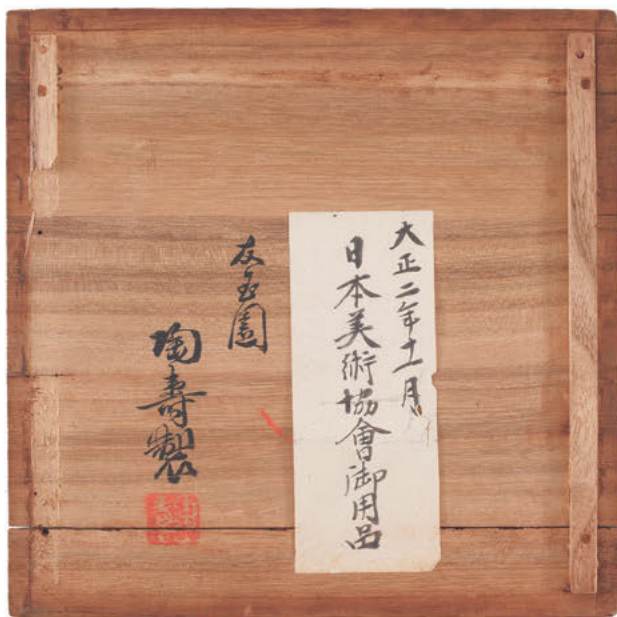 大正二年十一月
日本美術協會御用品
友玉園
陶壽製